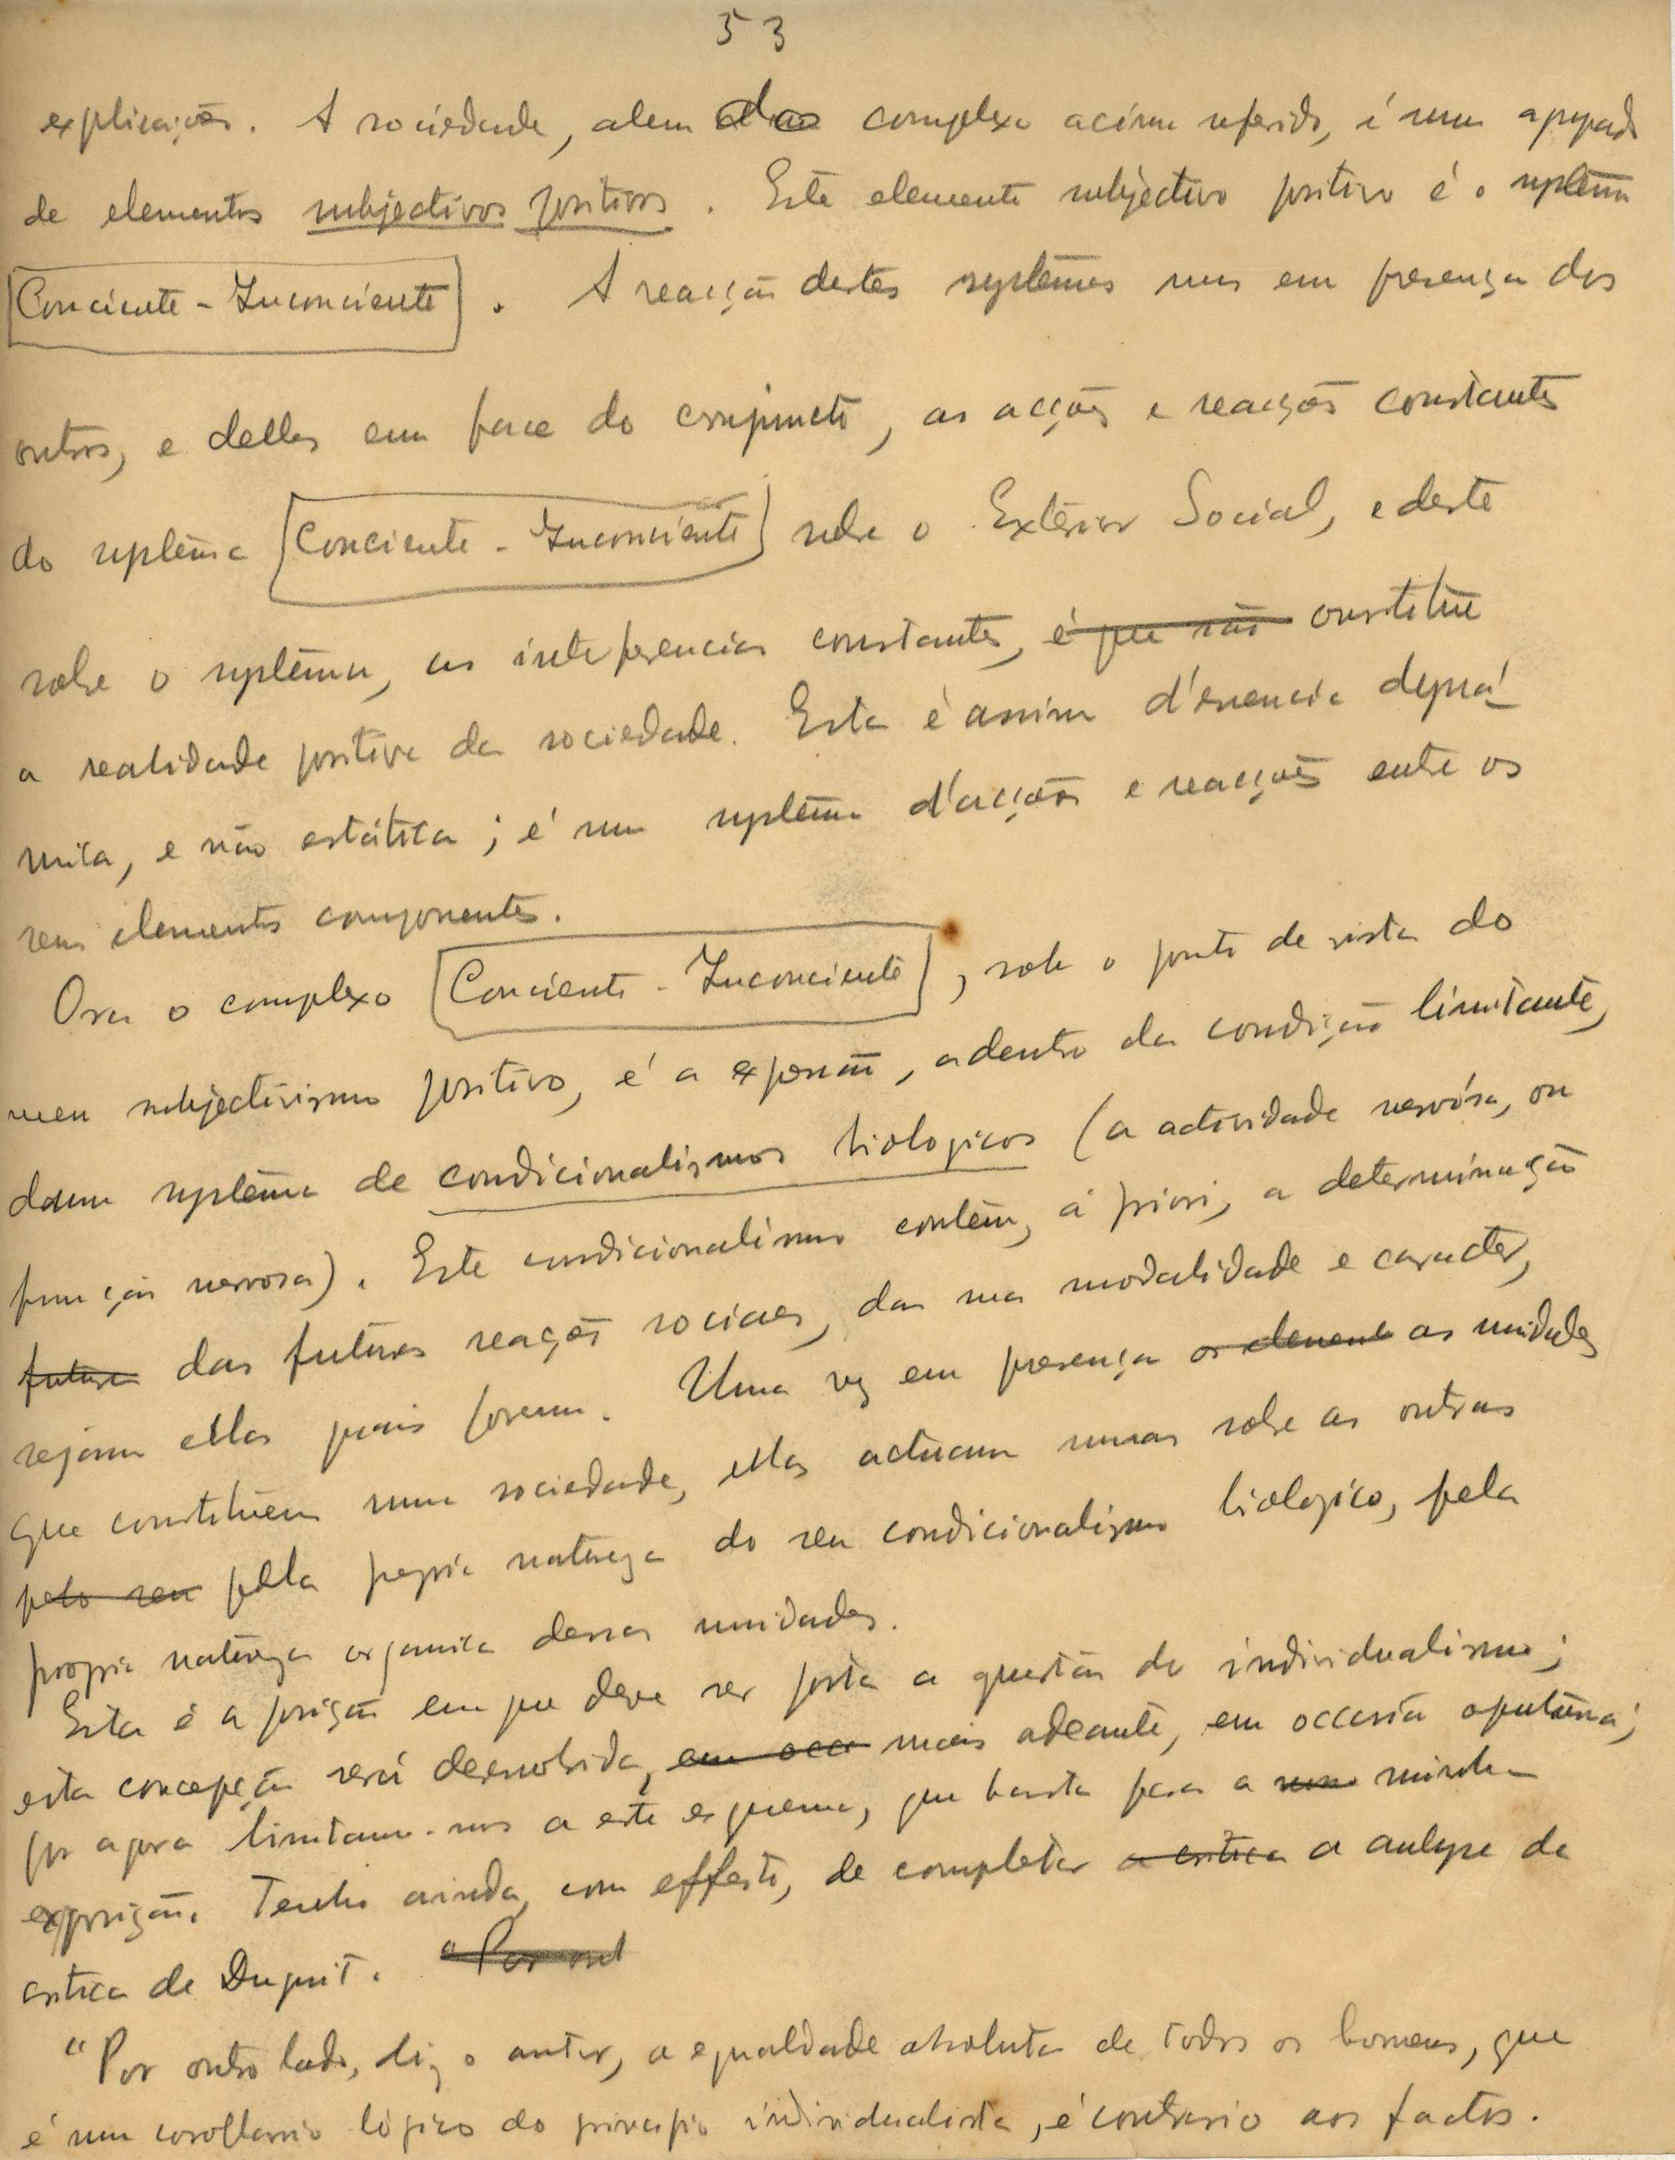 53
explicações. A sociedade, alem do complexo acima referido, é um agregado
de elementos subjectivos positivos. Este elemento subjectivo positivo é o systêma
Conciente - Inconciente. A reacção destes systêmas uns em presença dos
outros, e delles em face do conjuncto, as acções e reacções constantes
do systêma Conciente - Inconciente sobre o Exterior Social, e deste
sobre o systêma, as interferencias constantes, é que são constitúe
a realidade positiva da sociedade. Esta é assim d'essencia dyná-
mica, e não estática; é um systêma d'acções e reacções entre os
seus elementos componentes.
Ora o complexo Conciente - Inconciente, sob o ponto de vista do
meu subjectivismo positivo, é a expressão, adentro da condição limitante,
dum systêma de condicionalismos biologicos (a actividade nervósa, ou
funcção nervosa). Este condicionalismo contêm, á priori, a determinação
futura das futuras reações sociaes, da sua modalidade e caracter,
sejam ellas quais forem. Uma vez em presença os element as unidades
que constituem uma sociedade, ellas actuam umas sobre as outras
pelo seu pella propria natureza do seu condicionalismo biologico, pela
propria natureza organica dessas unidades.
Esta é a posição em que deve ser posta a questão do individualismo;
esta concepção será desenvolvida, em occa mais adeante, em occasião oportuna;
por agora limitamo-nos a este esquema, que basta para a minha
exposição. Tenho ainda, com effeito, de completar a critica a analyse da
critica de Duguit. Por out
"Por outro lado, diz o autor, a egualdade absoluta de todos os homens, que
é um corollario lógico do principio individualista, é contrario aos factos.